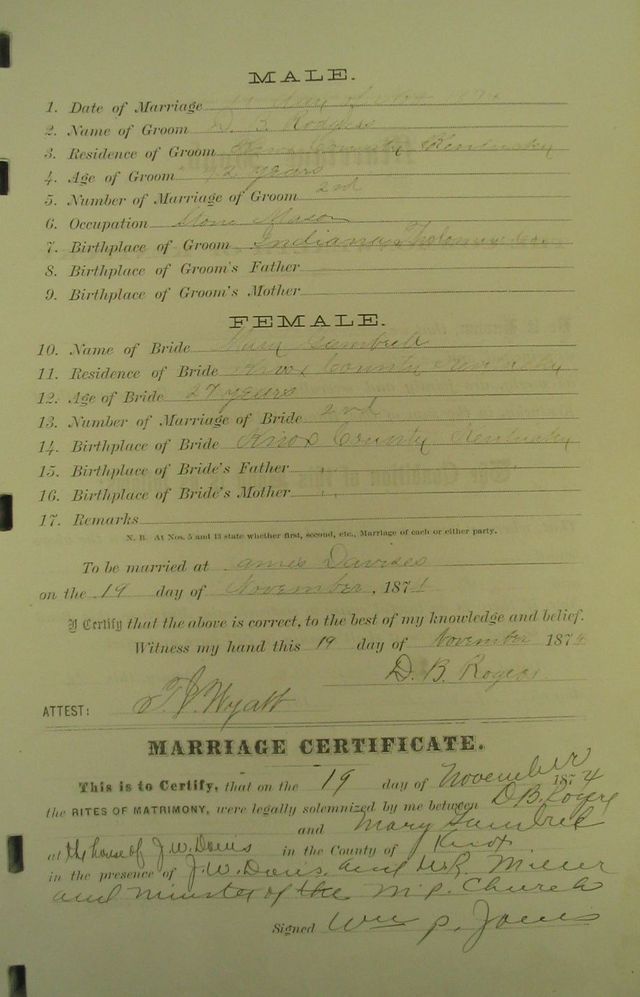 MALE.
1. Date of Marriage 19 November 1874
2. Name of Groom D. B. Rodgers
3. Residence of Groom Knox County Kentucky
4. Age of Groom 42 years
5. Number of Marriage of Groom 2nd
6. Occupation Stone Mason
7. Birthplace of Groom Indiana
8. Birthplace of Groom's Father
9. Birthplace of Groom's Mother
FEMALE.
10. Name of Bride Mary
11. Residence of Bride Knox County Kentucky
12. Age of Bride 27 years
13. Number of Marriage of Bride 2nd
14. Birthplace of Bride Knox County Kentucky
15. Birthplace of Bride's Father " "
16. Birthplace of Bride's Mother " "
17. Remarks
N. B. At Nos. 5 and 13 state whether first, second, etc., Marriage of each or either party.
To be married at
on the 19 day of November, 187
I Certify that the above is correct, to the best of my knowledge and belief.
Witness my hand this 19 day of November 1874
D. B. Rogers
ATTEST: Wyatt
MARRIAGE CERTIFICATE.
This is to Certify, that on the 19 day of November 1874
the RITES OF MATRIMONY, were legally solemnized by me between D B. Rogers
and Mary
at the house of J. W. Davis in the County of Knox
in the presence of J. W. Davis and Miller
and minister of the M. P. Church
Signed Wm P. Jones